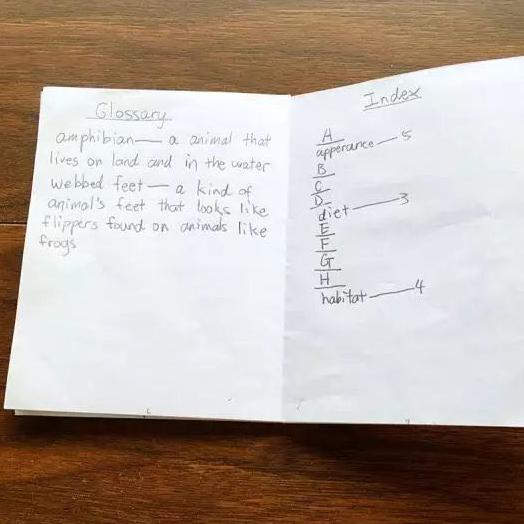 Glossary
amphibian— a animal that
lives on land and in the water
webbed feet— a kind of
animal's feet that looks like
flippers found on animals like
frogs
Index
A
apperance—5
B
C
D
diet—3
E
F
G
H
habitat—4